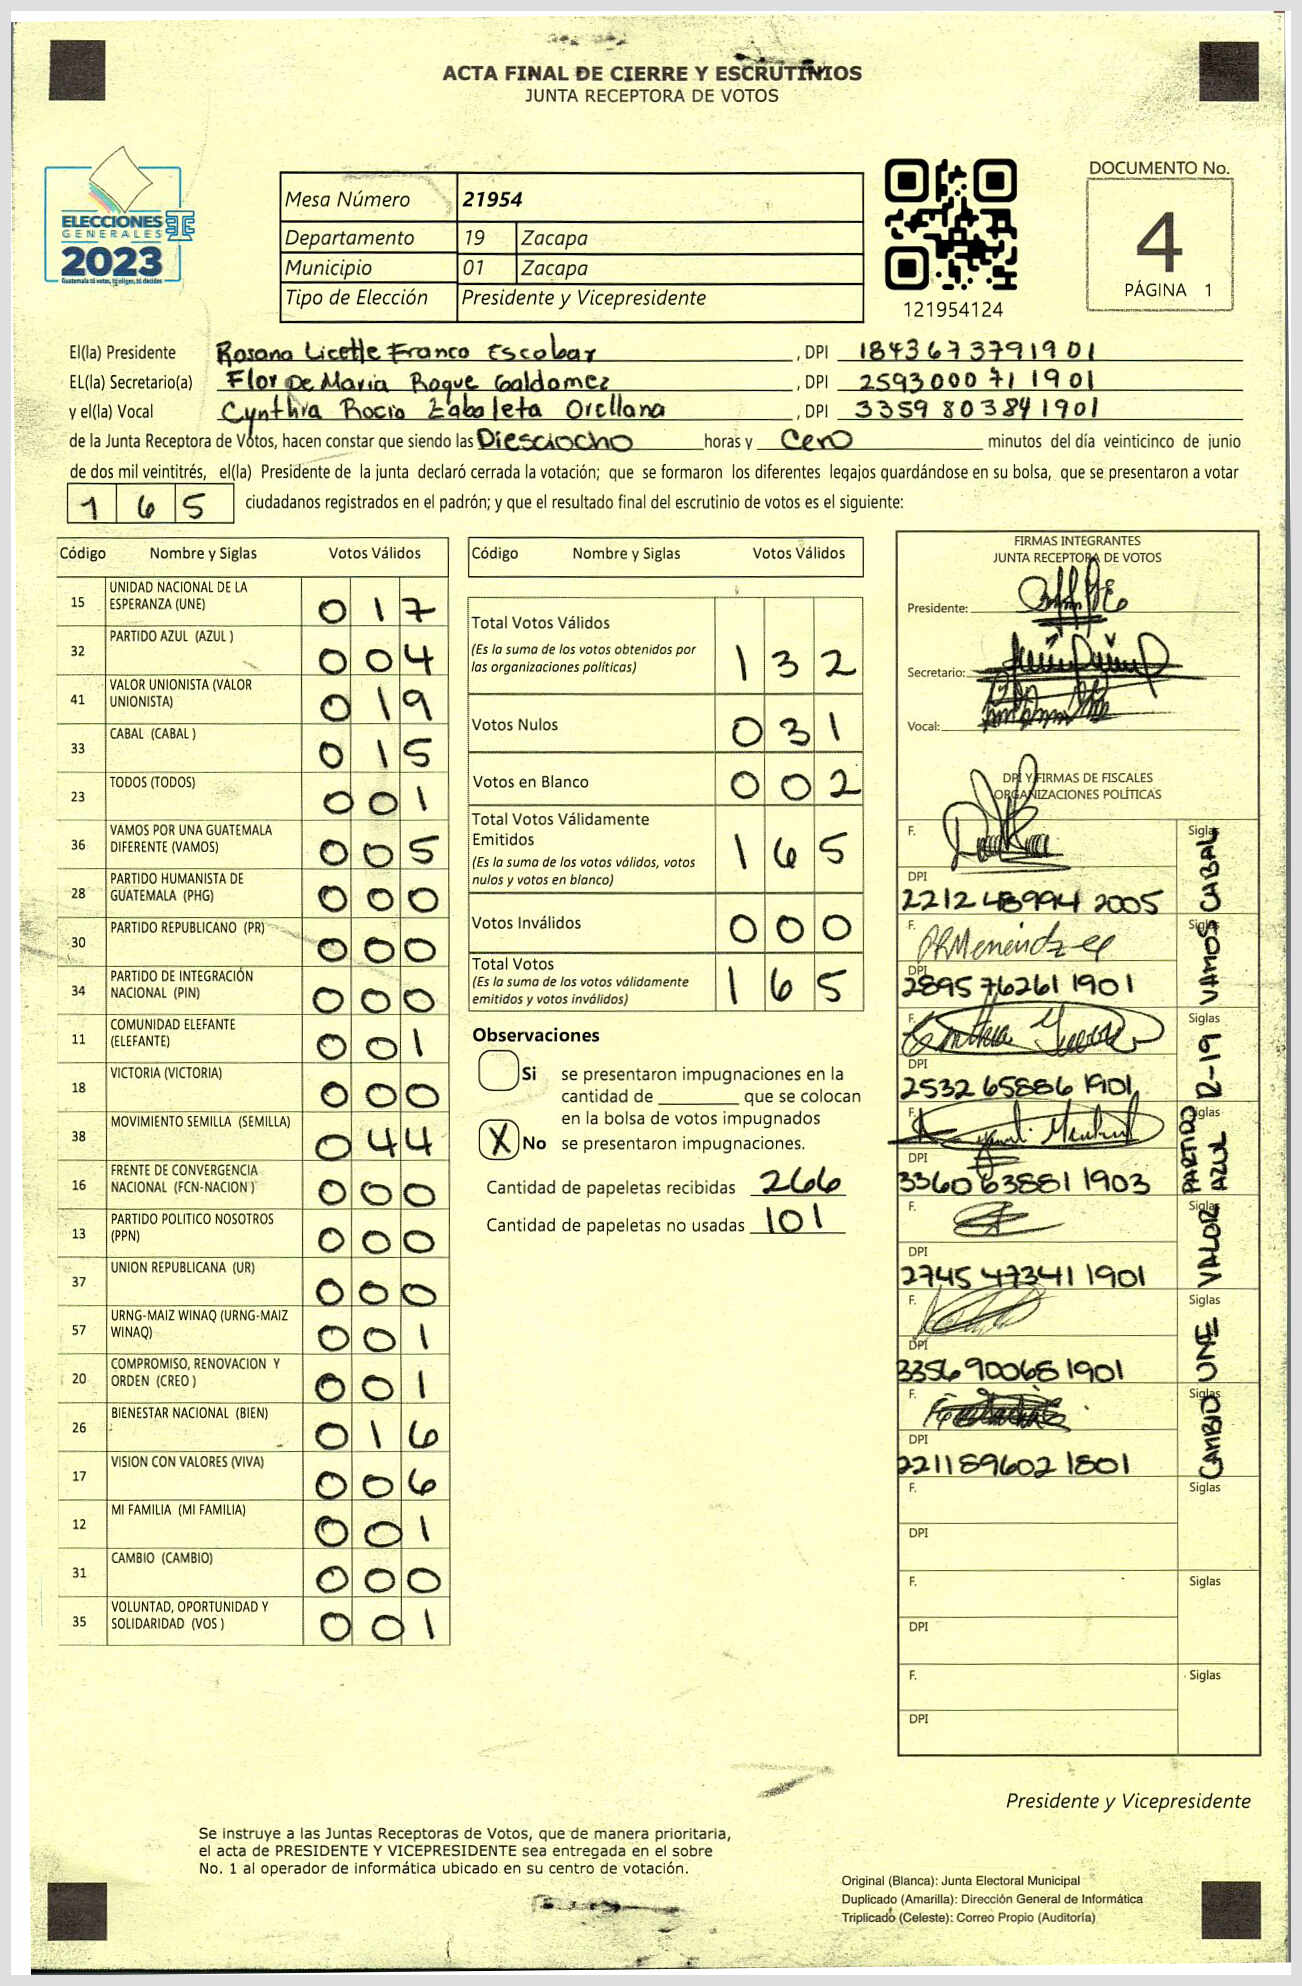 ACTA FINAL DE CIERRE Y ESCRUTINIOS
JUNTA RECEPTORA DE VOTOS
ELECCIONES
GENERALES
2023
Guatemala tú votas, tú eliges, tú decides
Mesa Número 21954
Departamento 19 Zacapa
Municipio 01 Zacapa
Tipo de Elección Presidente y Vicepresidente
121954124
DOCUMENTO No.
4
PÁGINA 1
El(la) Presidente Rosana Licette Franco Escobar , DPI 1843673791901
EL(la) Secretario(a) Flor De Maria Roque Galdamez , DPI 2593000711901
y el(la) Vocal Cynthia Rocio Zabaleta Orellana , DPI 3359803841901
de la Junta Receptora de Votos, hacen constar que siendo las Diesciocho horas y Cero minutos del día veinticinco de junio
de dos mil veintitrés, el(la) Presidente de la junta declaró cerrada la votación; que se formaron los diferentes legajos guardándose en su bolsa, que se presentaron a votar
165 ciudadanos registrados en el padrón; y que el resultado final del escrutinio de votos es el siguiente:
Código Nombre y Siglas Votos Válidos
15 UNIDAD NACIONAL DE LA
ESPERANZA (UNE) 017
32 PARTIDO AZUL (AZUL ) 004
41 VALOR UNIONISTA (VALOR
UNIONISTA) 019
33 CABAL (CABAL ) 015
23 TODOS (TODOS) 001
36 VAMOS POR UNA GUATEMALA
DIFERENTE (VAMOS) 005
28 PARTIDO HUMANISTA DE
GUATEMALA (PHG) 000
30 PARTIDO REPUBLICANO (PR) 000
34 PARTIDO DE INTEGRACIÓN
NACIONAL (PIN) 000
11 COMUNIDAD ELEFANTE
(ELEFANTE) 001
18 VICTORIA (VICTORIA) 000
38 MOVIMIENTO SEMILLA (SEMILLA) 044
16 FRENTE DE CONVERGENCIA
NACIONAL (FCN-NACION ) 000
13 PARTIDO POLITICO NOSOTROS
(PPN) 000
37 UNION REPUBLICANA (UR) 000
57 URNG-MAIZ WINAQ (URNG-MAIZ
WINAQ) 001
20 COMPROMISO, RENOVACION Y
ORDEN (CREO ) 001
26 BIENESTAR NACIONAL (BIEN) 016
17 VISION CON VALORES (VIVA) 006
12 MI FAMILIA (MI FAMILIA) 001
31 CAMBIO (CAMBIO) 000
35 VOLUNTAD, OPORTUNIDAD Y
SOLIDARIDAD (VOS ) 001
Código Nombre y Siglas Votos Válidos
Total Votos Válidos
(Es la suma de los votos obtenidos por
las organizaciones políticas) 132
Votos Nulos 031
Votos en Blanco 002
Total Votos Válidamente
Emitidos
(Es la suma de los votos válidos, votos
nulos y votos en blanco) 165
Votos Inválidos 000
Total Votos
(Es la suma de los votos válidamente
emitidos y votos inválidos) 165
Observaciones
Si se presentaron impugnaciones en la
cantidad de ________ que se colocan
en la bolsa de votos impugnados
X No se presentaron impugnaciones.
Cantidad de papeletas recibidas 266
Cantidad de papeletas no usadas 101
FIRMAS INTEGRANTES
JUNTA RECEPTORA DE VOTOS
Presidente:
Secretario:
Vocal:
DPI Y FIRMAS DE FISCALES
ORGANIZACIONES POLÍTICAS
F. Siglas CABAL
DPI
2212 48994 2005
F. Siglas VAMOS
DPI
2895 76261 1901
F. Siglas R-19
DPI
2532 65886 1901
F. Siglas PARTIDO AZUL
DPI
3360 63881 1903
F. Siglas VALOR
DPI
2745 47341 1901
F. Siglas UNE
DPI
3356 90068 1901
F. Siglas CAMBIO
DPI
2211 89602 1801
F. Siglas
DPI
F. Siglas
DPI
F. Siglas
DPI
Presidente y Vicepresidente
Se instruye a las Juntas Receptoras de Votos, que de manera prioritaria,
el acta de PRESIDENTE Y VICEPRESIDENTE sea entregada en el sobre
No. 1 al operador de informática ubicado en su centro de votación.
Original (Blanca): Junta Electoral Municipal
Duplicado (Amarilla): Dirección General de Informática
Triplicado (Celeste): Correo Propio (Auditoría)